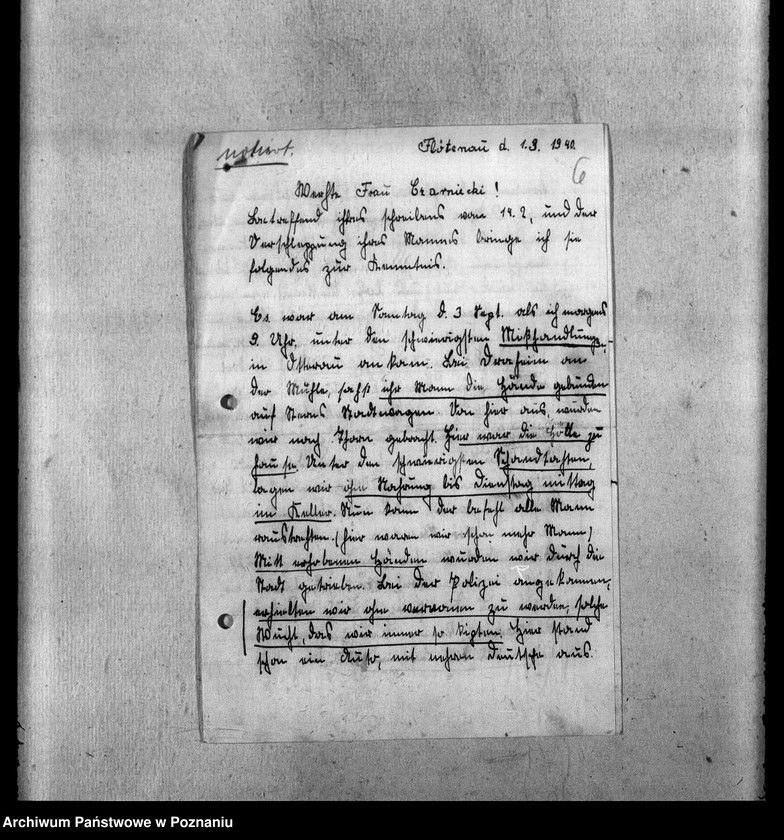 notiert.
Flötenau d. 1.3. 1940.
6
Werhte Frau Czarniecki!
Betreffend ihres schreibens vom 14.2, und der
Verschleppung ihres Mannes bringe ich sie
folgendes zur Kenntnis.
Es war am Sonntag d. 3 Sept. als ich morgens
9. Uhr, unter den schwierigsten Mißhandlungen,
in Osterau ankam. Bei Draheim an
der Mühle, sahs ihr Mann die Hände gebunden
auf Sterns Stadtwagen. Von hier aus, wurden
wir nach Thorn gebracht. Hier war die Hölle zu
hause. Unter den schwierigsten Schandtahten,
lagen wir ohne Nahrung bis Dienstag mittag
im Keller. Nun kam der befehl alle Mann
raustrehten. (hier waren wir schon mehr Mann)
Mitt erhobenen Händen wurden wir durch die
Stadt getrieben. Bei der Polizei angekommen,
erhielten wir ohne vernomen zu werden, solche
Wucht, das wir immer so kipten. Hier stand
schon ein Auto, mit mehren Deutsche aus.
Archiwum Państwowe w Poznaniu